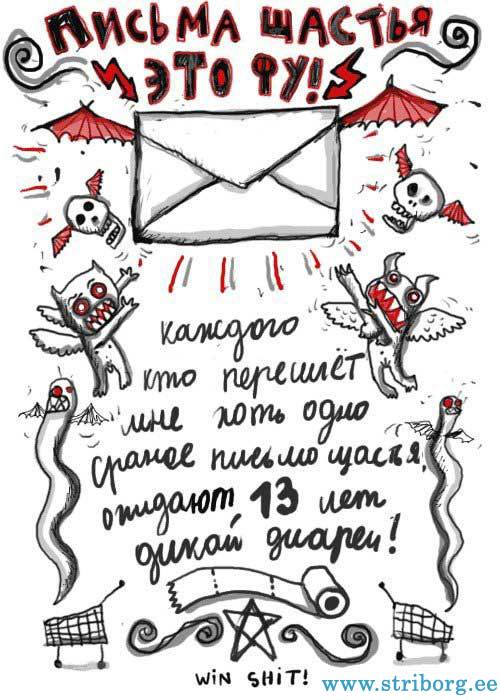 ПИСЬМА ЩАСТЬЯ
ЭТО ФУ!
каждого
кто перешлёт
мне хоть одно
сраное письмо щастья,
ожидают 13 лет
дикай диареи!
WIN SHIT!
www.striborg.ee